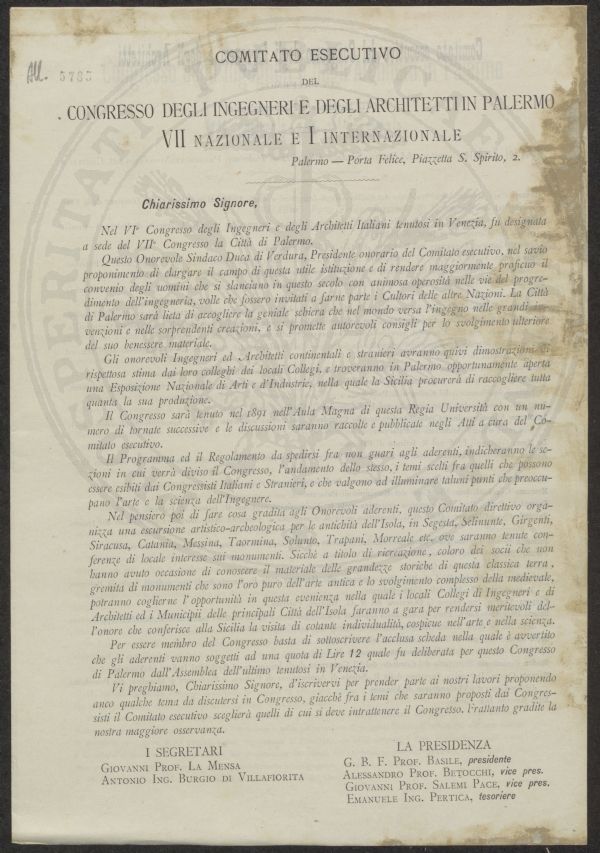 All. 5785
COMITATO ESECUTIVO
DEL
CONGRESSO DEGLI INGEGNERI E DEGLI ARCHITETTI IN PALERMO
VII NAZIONALE E I INTERNAZIONALE
Palermo — Porta Felice, Piazzetta S. Spirito, 2.
Chiarissimo Signore,
Nel VI° Congresso degli Ingegneri e degli Architetti Italiani tenutosi in Venezia, fu designata
a sede del VII° Congresso la Città di Palermo.
Questo Onorevole Sindaco Duca di Verdura, Presidente onorario del Comitato esecutivo, nel savio
proponimento di elargare il campo di questa utile istituzione e di rendere maggiormente proficuo il
convenio degli uomini che si slanciano in questo secolo con animosa operosità nelle vie del progre-
dimento dell'ingegneria, volle che fossero invitati a farne parte i Cultori delle altre Nazioni. La Città
di Palermo sarà lieta di accogliere la geniale schiera che nel mondo versa l'ingegno nelle grandi in-
venzioni e nelle sorprendenti creazioni, e si promette autorevoli consigli per lo svolgimento ulteriore
del suo benessere materiale.
Gli onorevoli Ingegneri ed Architetti continentali e stranieri avranno quivi dimostrazioni di
rispettosa stima dai loro colleghi dei locali Collegi, e troveranno in Palermo opportunamente aperta
una Esposizione Nazionale di Arti e d'Industrie, nella quale la Sicilia procurerà di raccogliere tutta
quanta la sua produzione.
Il Congresso sarà tenuto nel 1891 nell'Aula Magna di questa Regia Università con un nu-
mero di tornate successive e le discussioni saranno raccolte e pubblicate negli Atti a cura del Co-
mitato esecutivo.
Il Programma ed il Regolamento da spedirsi fra non guari agli aderenti, indicheranno le se-
zioni in cui verrà diviso il Congresso, l'andamento dello stesso, i temi scelti fra quelli che possono
essere esibiti dai Congressisti Italiani e Stranieri, e che valgono ad illuminare taluni punti che preoccu-
pano l'arte e la scienza dell'Ingegnere.
Nel pensiero poi di fare cosa gradita agli Onorevoli aderenti, questo Comitato direttivo orga-
nizza una escursione artistico-archeologica per le antichità dell'Isola, in Segesta, Selinunte, Girgenti,
Siracusa, Catania, Messina, Taormina, Solunto, Trapani, Morreale etc. ove saranno tenute con-
ferenze di locale interesse sui monumenti. Sicchè a titolo di ricreazione, coloro dei socii che non
hanno avuto occasione di conoscere il materiale delle grandezze storiche di questa classica terra,
gremita di monumenti che sono l'oro puro dell'arte antica e lo svolgimento complesso della medievale,
potranno coglierne l'opportunità in questa evenienza nella quale i locali Collegi di Ingegneri e di
Architetti ed i Municipii delle principali Città dell'Isola faranno a gara per rendersi meritevoli del-
l'onore che conferisce alla Sicilia la visita di cotante individualità, cospicue nell'arte e nella scienza.
Per essere membro del Congresso basta di sottoscrivere l'acclusa scheda nella quale è avvertito
che gli aderenti vanno soggetti ad una quota di Lire 12 quale fu deliberata per questo Congresso
di Palermo dall'Assemblea dell'ultimo tenutosi in Venezia.
Vi preghiamo, Chiarissimo Signore, d'iscrivervi per prender parte ai nostri lavori proponendo
anco qualche tema da discutersi in Congresso, giacchè fra i temi che saranno proposti dai Congres-
sisti il Comitato esecutivo sceglierà quelli di cui si deve intrattenere il Congresso. Frattanto gradite la
nostra maggiore osservanza.
I SEGRETARI
GIOVANNI PROF. LA MENSA
ANTONIO ING. BURGIO DI VILLAFIORITA
LA PRESIDENZA
G. B. F. PROF. BASILE, presidente
ALESSANDRO PROF. BETOCCHI, vice pres.
GIOVANNI PROF. SALEMI PACE, vice pres.
EMANUELE ING. PERTICA, tesoriere